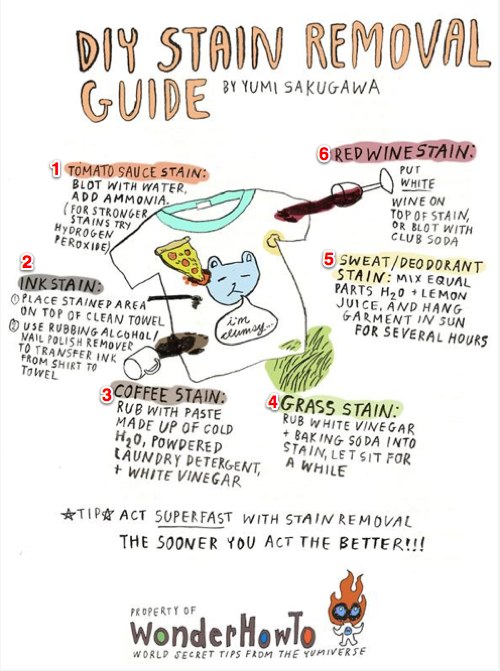 DIY STAIN REMOVAL
GUIDE BY YUMI SAKUGAWA
1 TOMATO SAUCE STAIN:
BLOT WITH WATER,
ADD AMMONIA.
(FOR STRONGER
STAINS TRY
HYDROGEN
PEROXIDE)
2
INK STAIN:
① PLACE STAINED AREA
ON TOP OF CLEAN TOWEL
② USE RUBBING ALCOHOL/
NAIL POLISH REMOVER
TO TRANSFER INK
FROM SHIRT TO
TOWEL
3 COFFEE STAIN:
RUB WITH PASTE
MADE UP OF COLD
H₂O, POWDERED
LAUNDRY DETERGENT,
+ WHITE VINEGAR
i'm
clumsy...
6 RED WINE STAIN:
PUT
WHITE
WINE ON
TOP OF STAIN,
OR BLOT WITH
CLUB SODA
5 SWEAT/DEODORANT
STAIN: MIX EQUAL
PARTS H₂O + LEMON
JUICE, AND HANG
GARMENT IN SUN
FOR SEVERAL HOURS
4 GRASS STAIN:
RUB WHITE VINEGAR
+ BAKING SODA INTO
STAIN, LET SIT FOR
A WHILE
☆TIP☆ ACT SUPERFAST WITH STAIN REMOVAL
THE SOONER YOU ACT THE BETTER!!!
PROPERTY OF
WonderHowTo
WORLD SECRET TIPS FROM THE YUMIVERSE